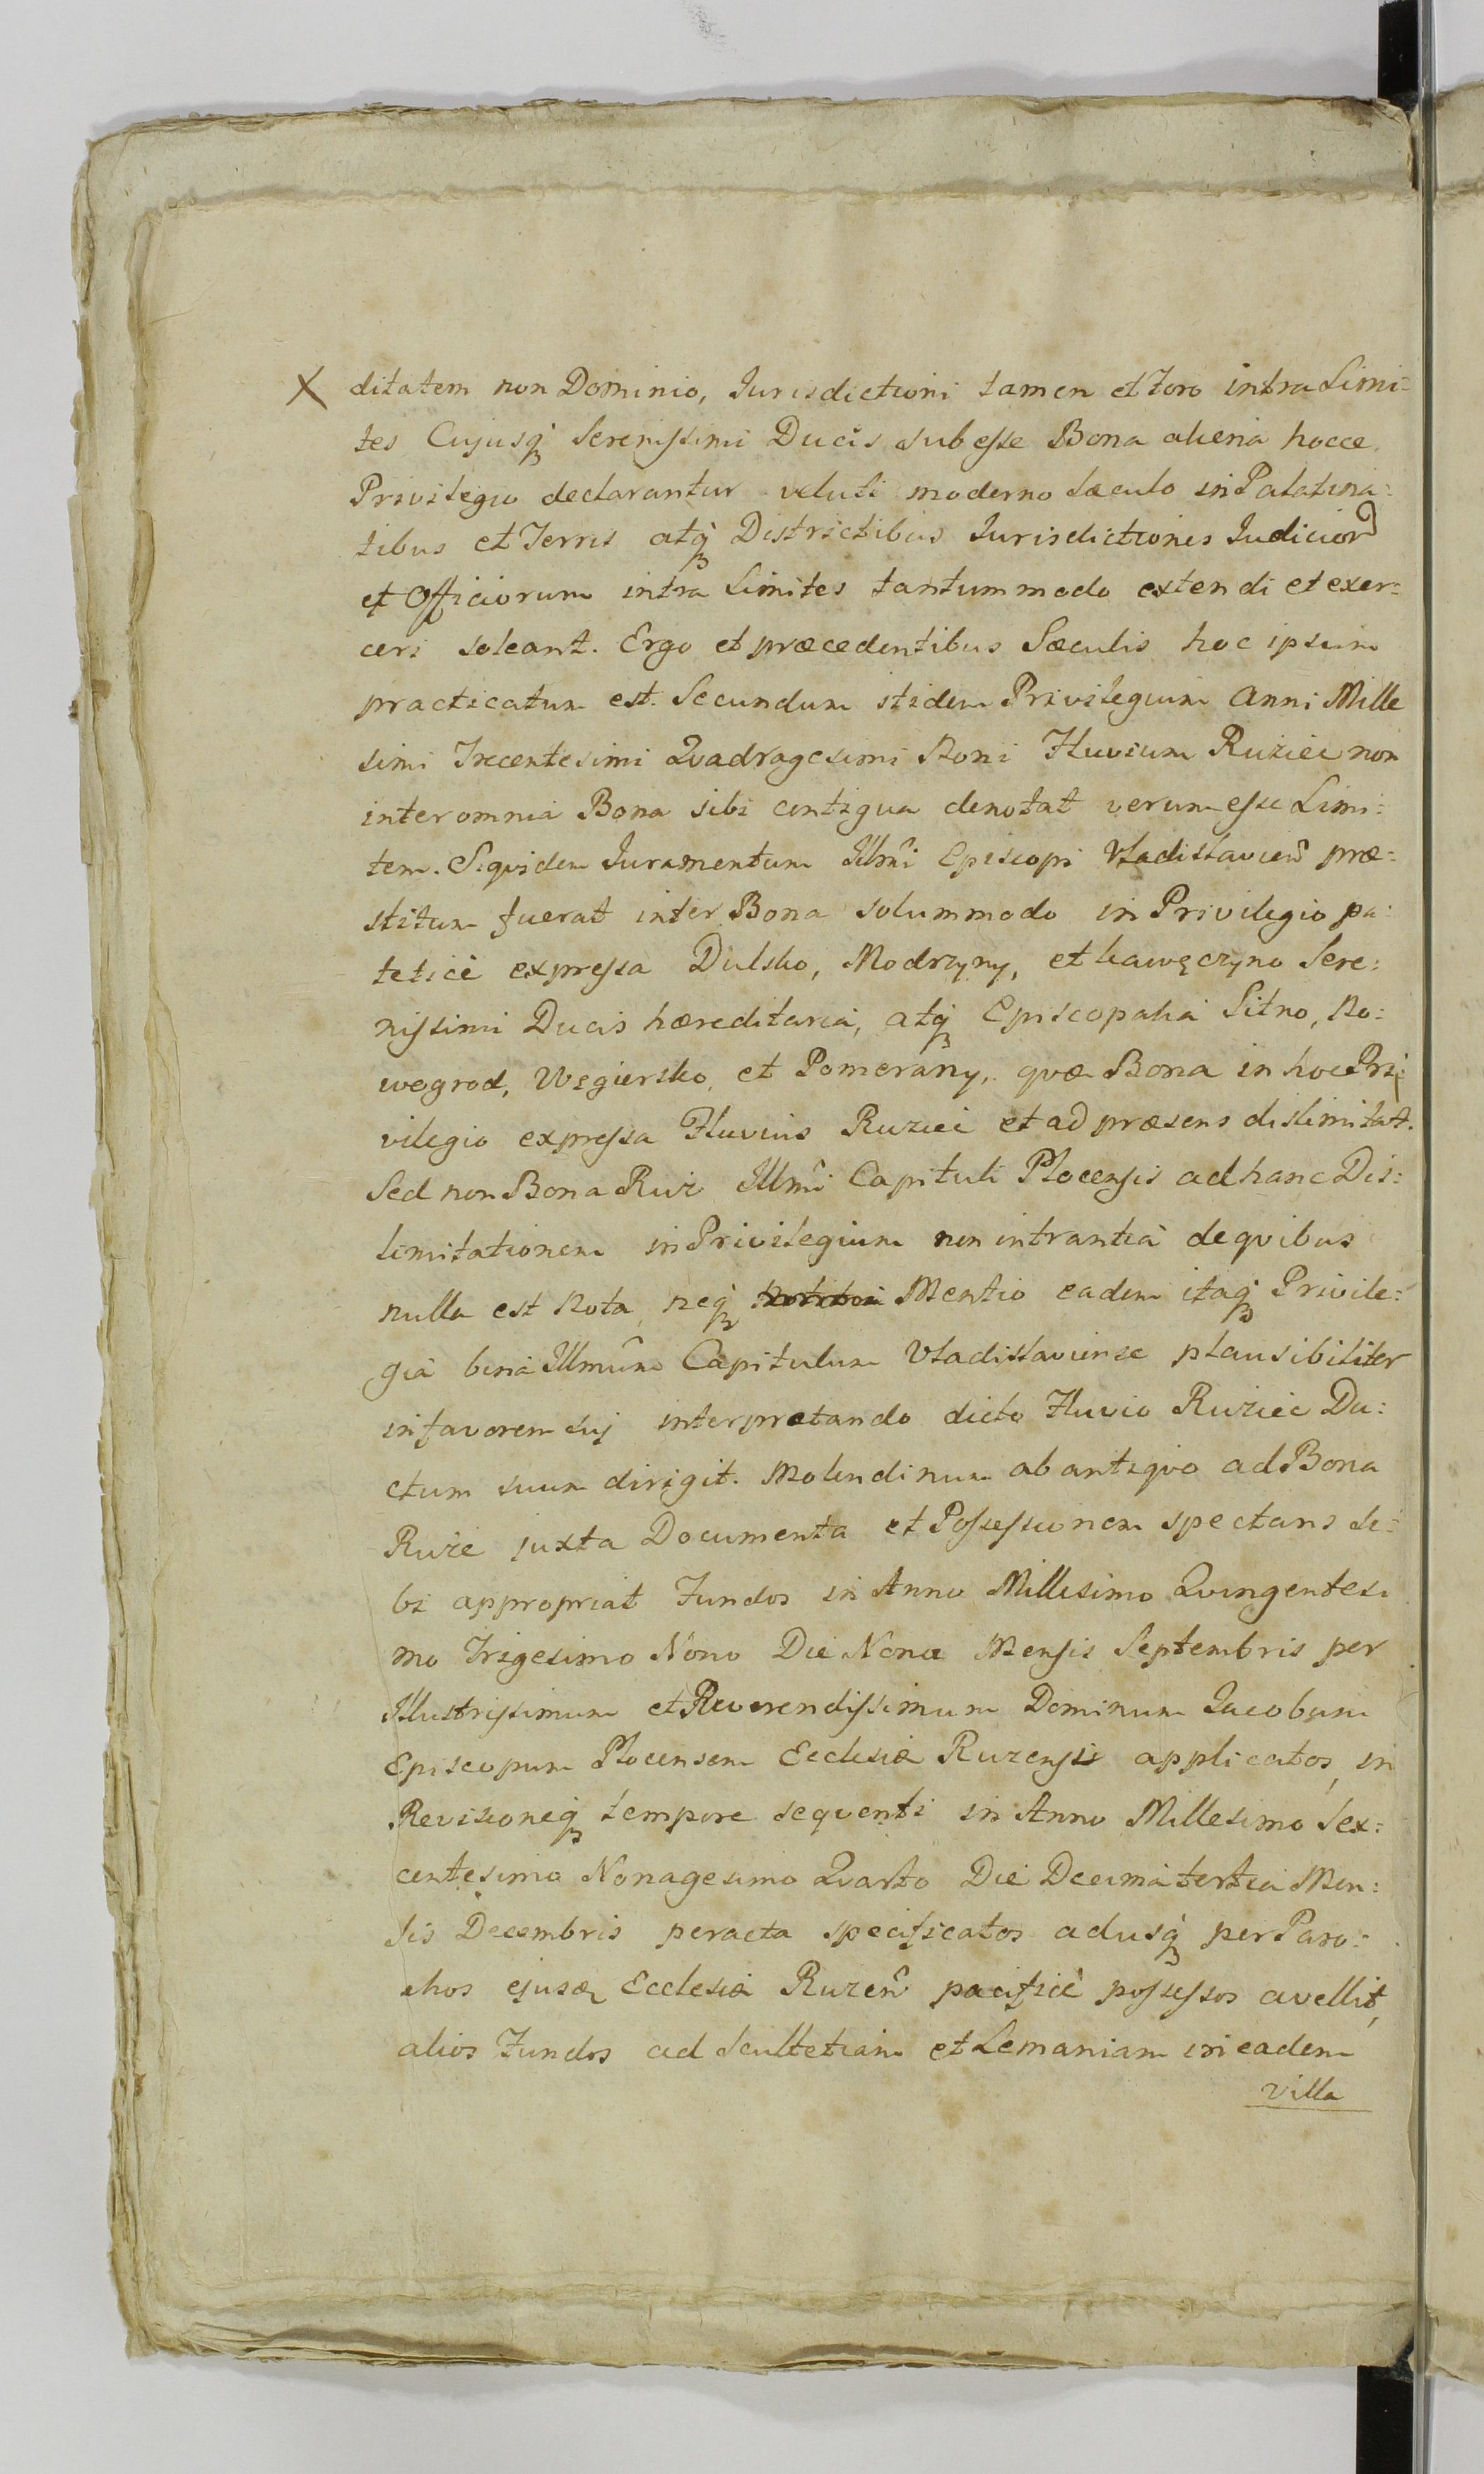 X ditatem non Dominio, Jurisdictioni tamen et Foro intra Limi=
tes Cujusq Serenissimi Ducis subesse Bona aliena hocce
Privilegio declarantur veluti moderno Sæculo in Palatina=
tibus et Terris atq Districtibus Jurisdictiones Judicior
et Officiorum intra Limites tantummodo extendi et exer=
ceri soleant. Ergo et præcedentibus Sæculis hoc ipsum
practicatum est. Secundum itidem Privilegium Anni Mille
simi Trecentesimi Qvadragesimi Noni Fluvium Ruziec non
inter omnia Bona sibi contigua denotat verum esse Limi=
tem. Siqvidem Juramentum Illmi Episcopi Vladislavien præ=
stitum fuerat inter Bona solummodo in Privilegio pa=
teticè expressa Dulsko, Modrzyny, et kawęczyno Sere=
nissimi Ducis hæreditaria, atq Episcopalia Sitno, No=
wogrod, Węgiersko, et Pomerany, qvæ Bona in hoc Pri=
vilegio expressa Fluvius Ruziec et ad præsens dislimitat.
Sed non Bona Ruż Illmi Capituli Plocensis ad hanc Dis=
limitationem in Privilegium non intrantia de qvibus
nulla est Nota, neq Mentio eadem itaq Privile=
gia bina Illmum Capitulum Vladislaviense plausibiliter
in favorem suj interpretando dicto Fluvio Ruziec Du=
ctum suum dirigit. Molendinum ab antiqvo ad Bona
Ruże juxta Documenta et Possessionem spectans si=
bi appropriat Fundos in Anno Millesimo Qvingentesi
mo Trigesimo Nono Die Nona Mensis Septembris per
Illustrissimum et Reverendissimum Dominum Jacobum
Episcopum Plocensem Ecclesiæ Ruzensis applicatos, in
Revisioneq tempore seqventi in Anno Millesimo Sex=
centesimo Nonagesimo Qvarto Die Decima tertia Men=
sis Decembris peracta specificatos adusq per Paro=
chos ejusdem Ecclesiæ Ruzen pacificè possessos avellit,
alios Fundos ad Scultetiam et Lemaniam in eadem
villa